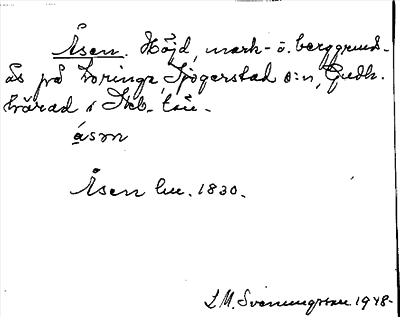 Åsen. Höjd, mark- o. berggrund-
ås på Loringa, Sjögerstad s:n, Gudh.
härad i Skb. län.
åsṇ
Åsen lm. 1830.
L.M. Svenungsson 1948-